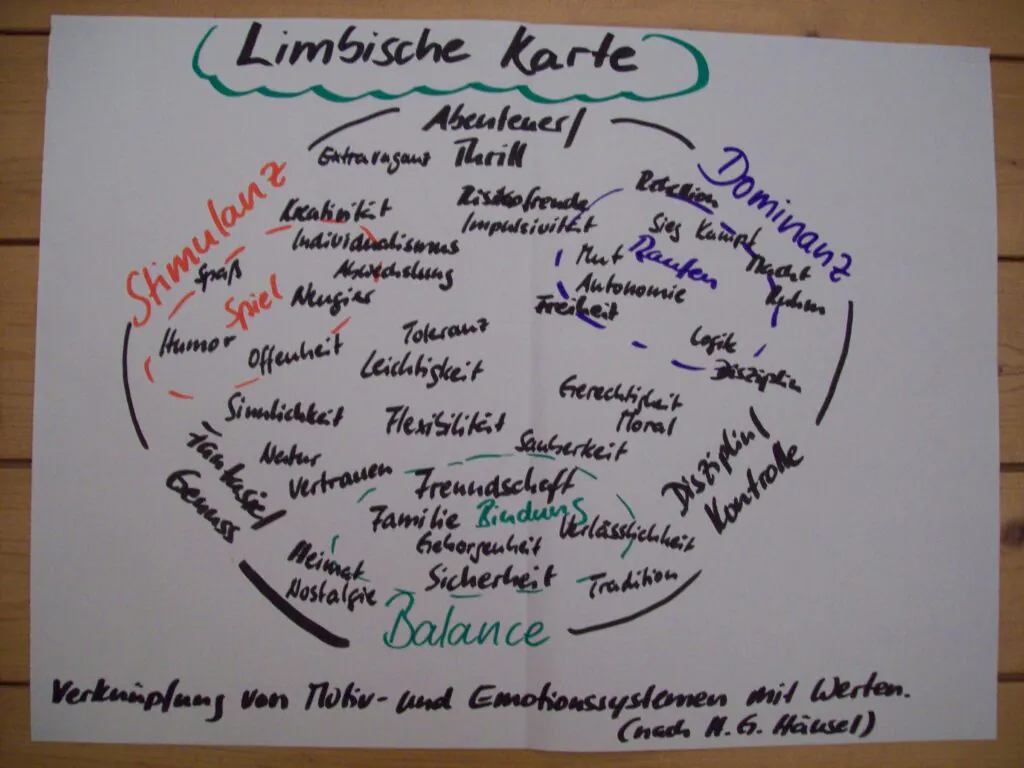 Limbische Karte
Abenteuer/
Thrill
Extravaganz
Stimulanz
Dominanz
Kreativität
Individualismus
Spaß
Abwechslung
Spiel
Neugier
Humor
Offenheit
Risikofreude
Impulsivität
Rebellion
Sieg Kampf
Mut Raufen Macht
Autonomie Ruhm
Freiheit
Logik
Disziplin
Toleranz
Leichtigkeit
Sinnlichkeit
Flexibilität
Gerechtigkeit
Moral
Sauberkeit
Natur
Vertrauen
Fantasie/
Genuss
Disziplin/
Kontrolle
Freundschaft
Familie Bindung Verlässlichkeit
Geborgenheit
Heimat
Nostalgie
Sicherheit
Tradition
Balance
Verknüpfung von Motiv- und Emotionssystemen mit Werten.
(nach H. G. Häusel)